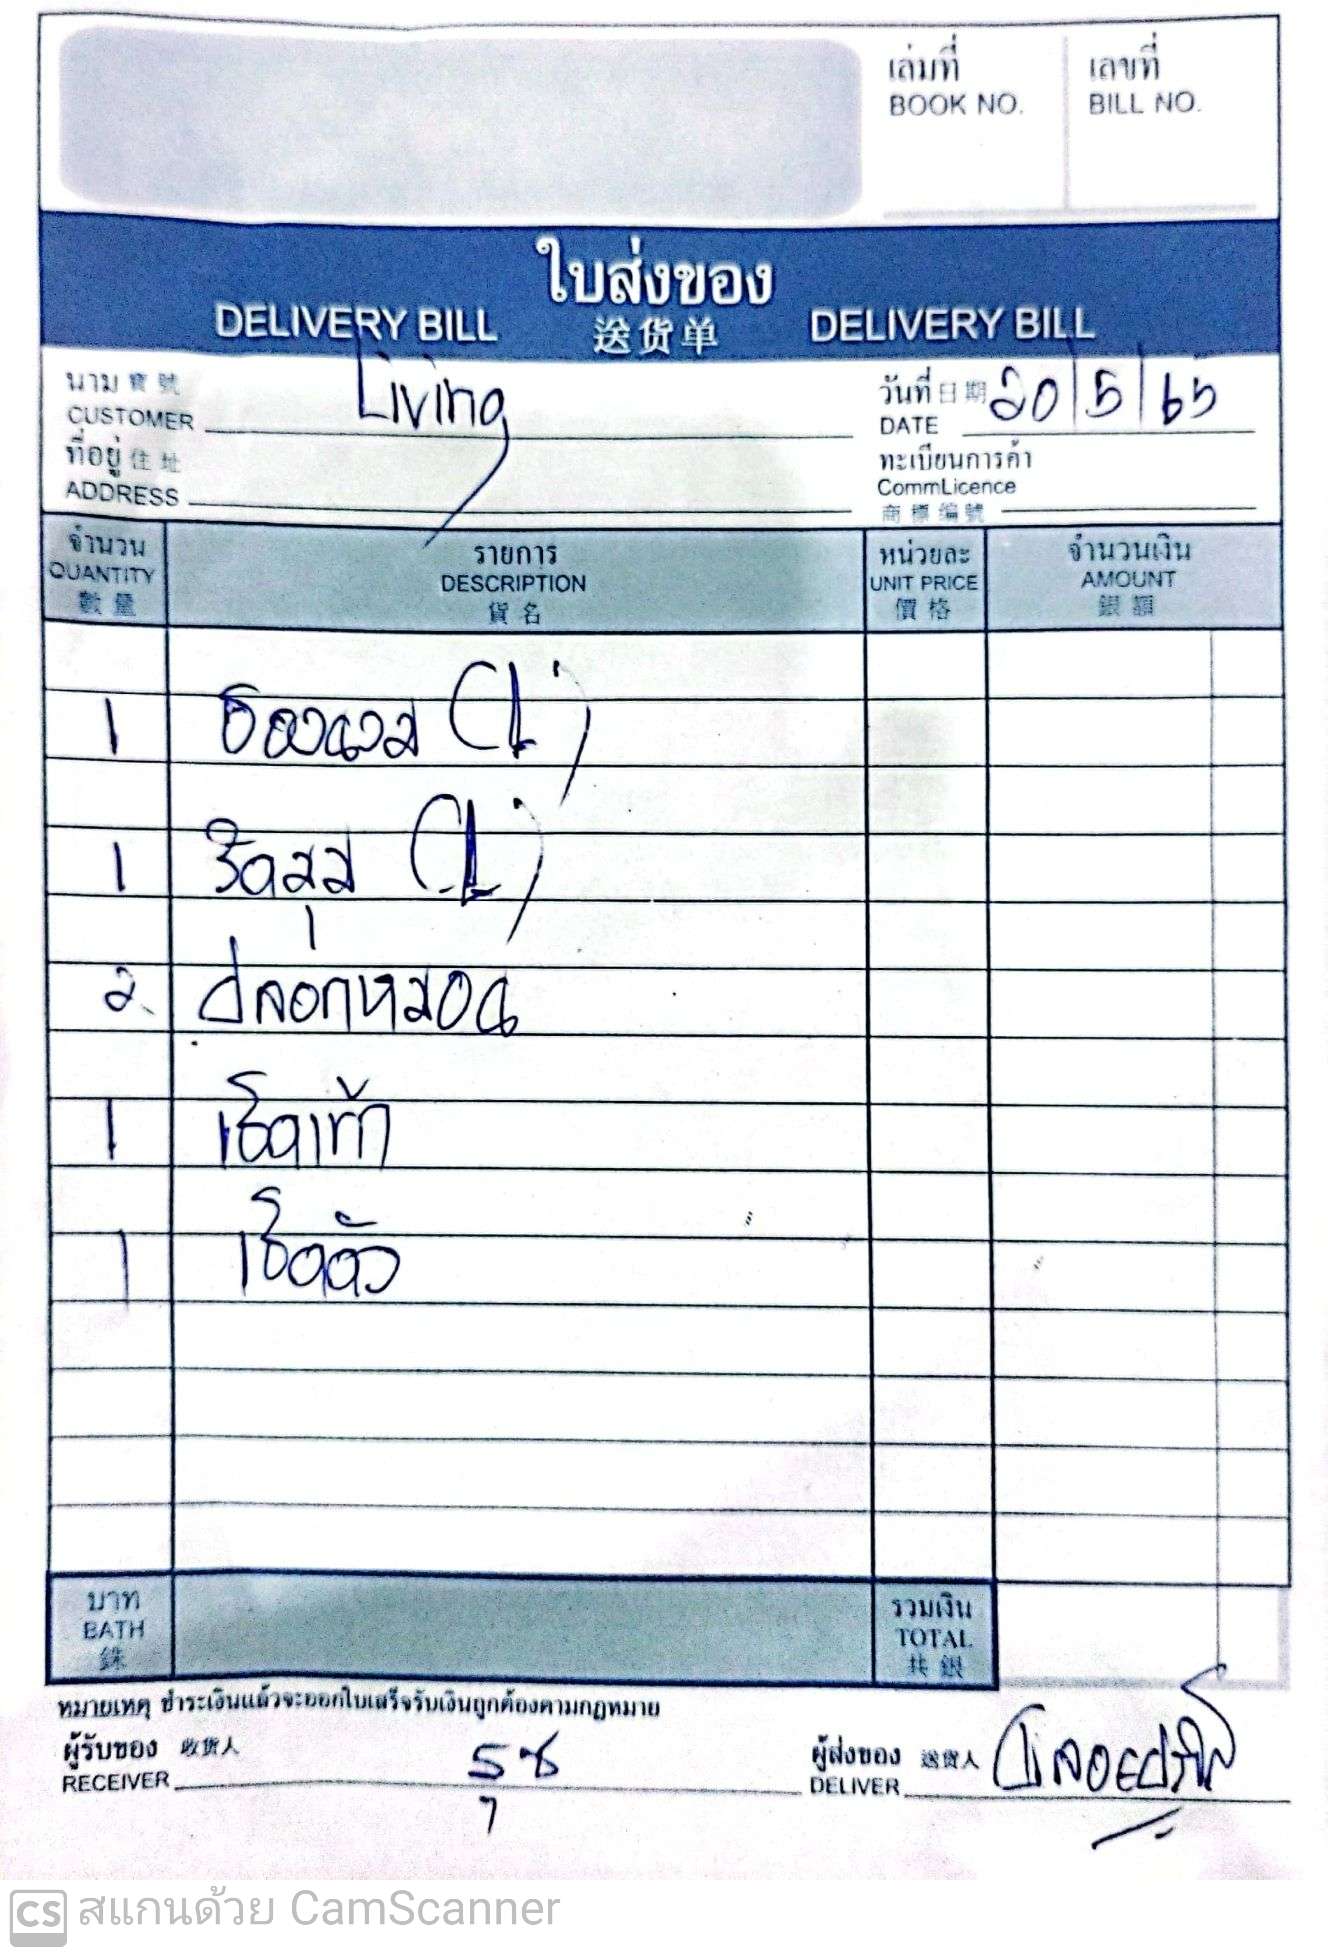 เล่มที่ เลขที่
BOOK NO. BILL NO.
ใบส่งของ
DELIVERY BILL 送货单 DELIVERY BILL
นาม 寶號 Living วันที่ 日期 20/5/65
CUSTOMER DATE
ที่อยู่ 住址 ทะเบียนการค้า
ADDRESS CommLicence
商標編號
จำนวน รายการ หน่วยละ จำนวนเงิน
QUANTITY DESCRIPTION UNIT PRICE AMOUNT
數量 貨名 價格 銀額
1 รองนวม (L)
1 รัดสม (L)
2 ปลอกหมอน
1 เช็ดเท้า
1 เช็ดตัว
บาท รวมเงิน
BATH TOTAL
銖 共銀
หมายเหตุ ชำระเงินแล้วจะออกใบเสร็จรับเงินถูกต้องตามกฎหมาย
ผู้รับของ 收货人 ผู้ส่งของ 送货人
RECEIVER DELIVER
CS สแกนด้วย CamScanner